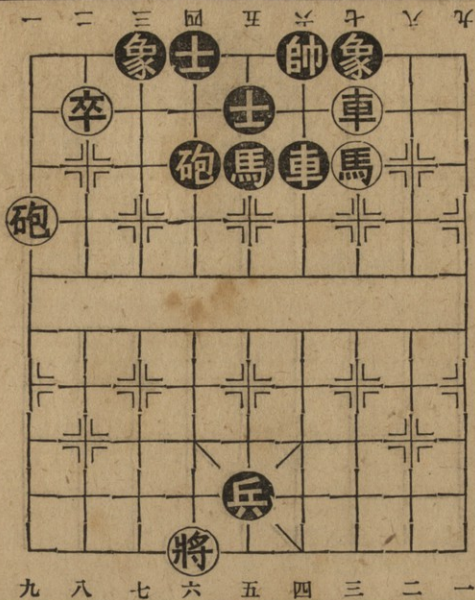 一 二 三 四 五 六 七 八 九
象 士 帥 象
卒 士 車
砲 馬 車 馬
砲
兵
將
九 八 七 六 五 四 三 二 一